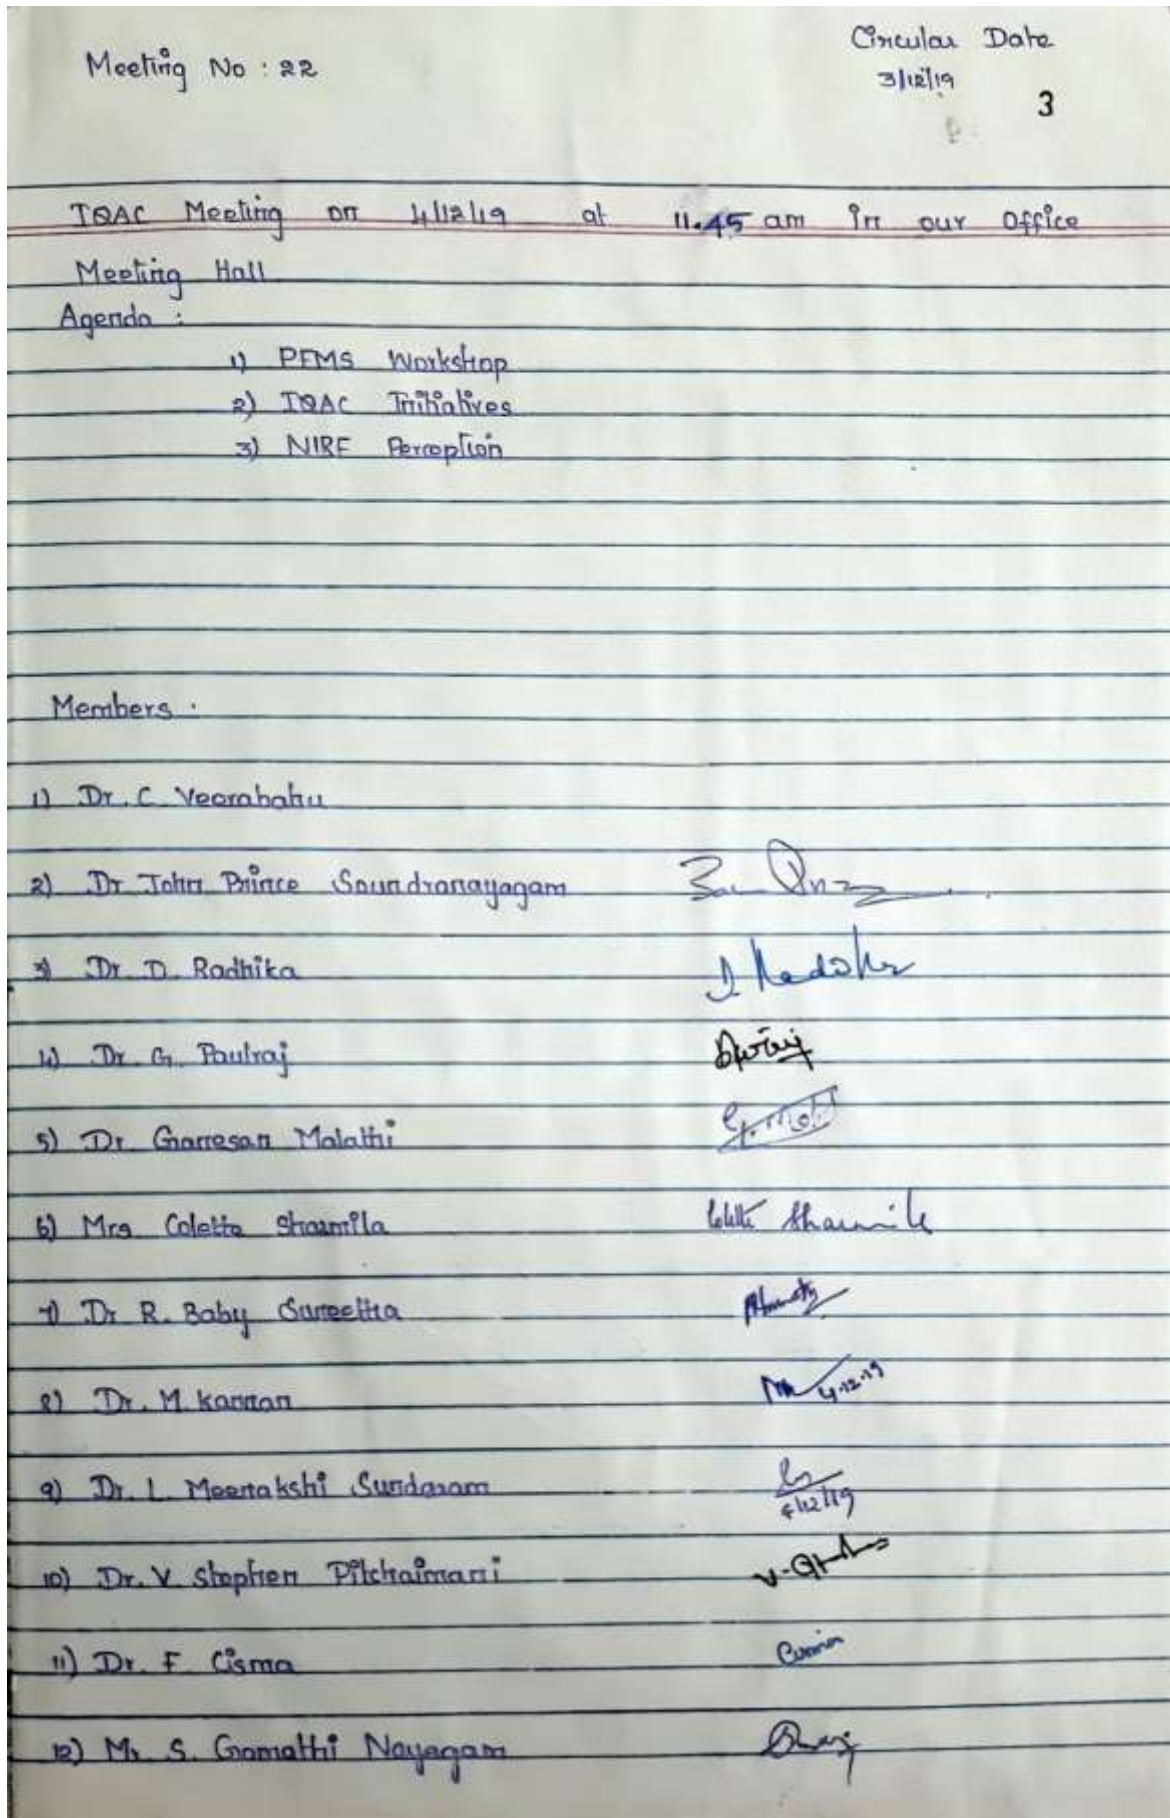 Meeting No : 22
Circular Date
3/12/19
3
IQAC Meeting on 4/12/19 at 11.45 am in our Office
Meeting Hall
Agenda :
1) PFMS Workshop
2) IQAC Initiatives
3) NIRF Perception
Members :
1) Dr. C Veerabahu
2) Dr John Prince Soundranayagam
3) Dr. D. Radhika D. Radhika
4) Dr. G. Paulraj
5) Dr. Ganesan Malathi
6) Mrs Colette Sharmila Colette Sharmila
7) Dr R. Baby Suneetha
8) Dr. M. Kannan 4.12.19
9) Dr. L. Meenakshi Sundaram 4/12/19
10) Dr. V. Stephen Pitchaimani
11) Dr. F. Cisma
12) Mr. S. Gomathi Nayagam